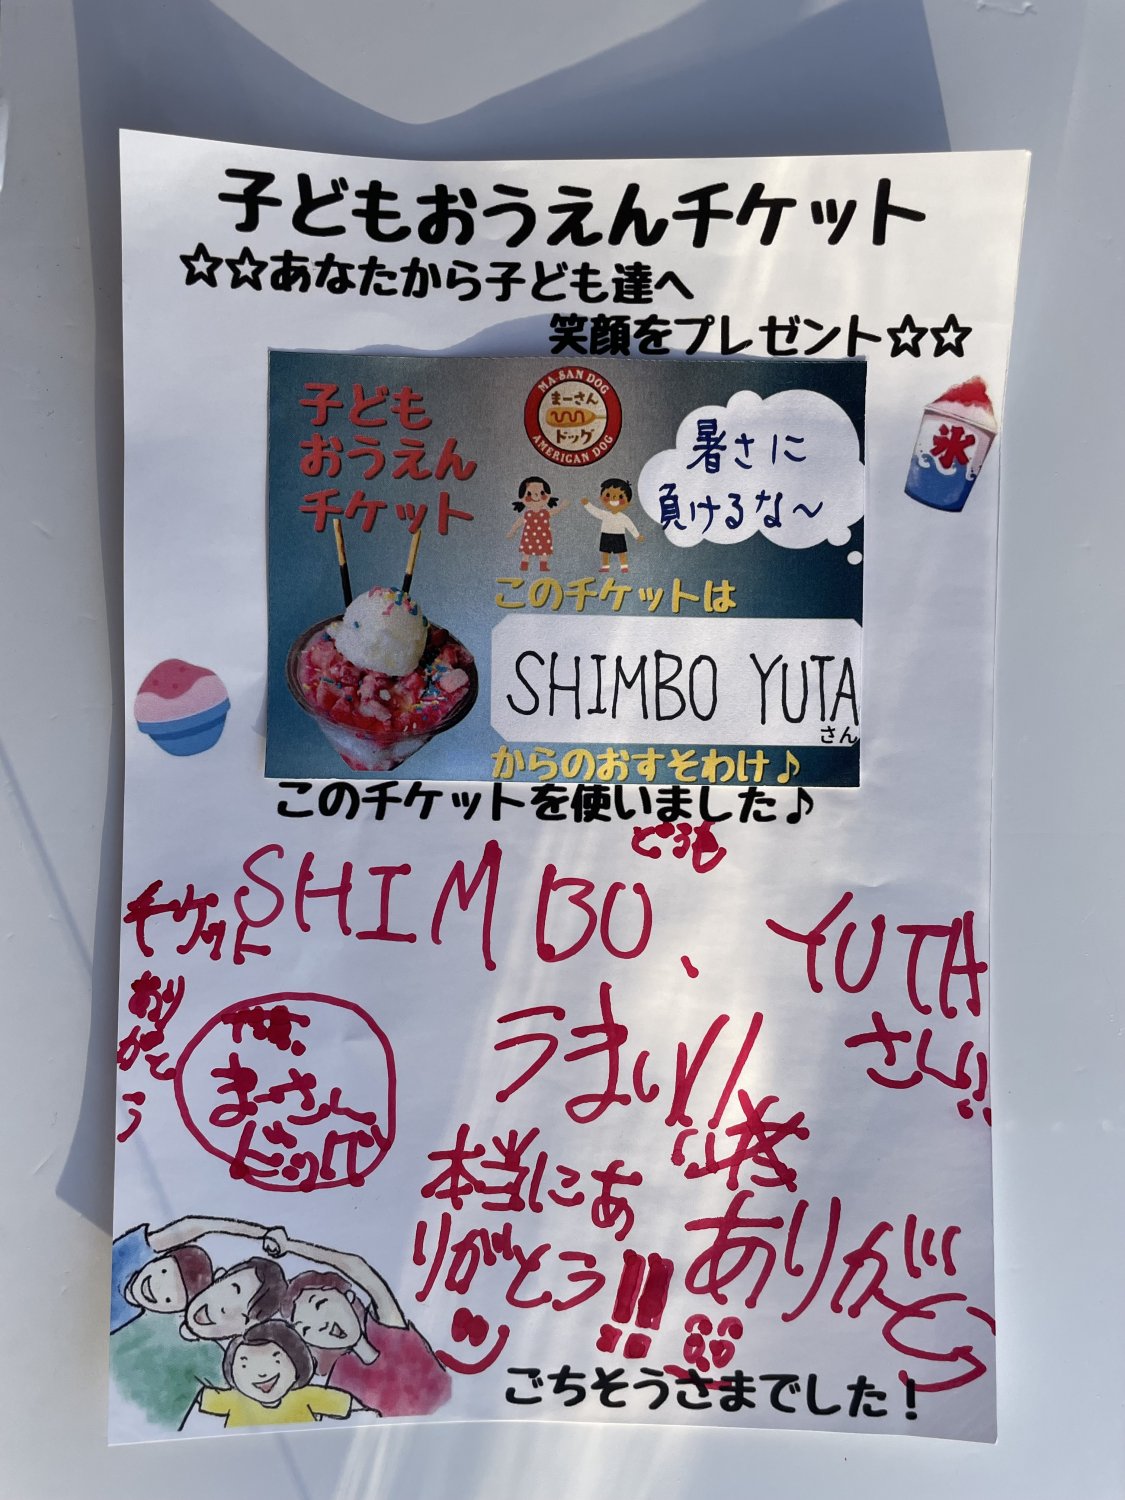 子どもおうえんチケット
☆☆あなたから子ども達へ
笑顔をプレゼント☆☆
子ども
おうえん
チケット
MA SAN DOG
まーさん
ドッグ
AMERICAN DOG
暑さに
負けるな〜
氷
このチケットは
SHIMBO YUTA
さん
からのおすそわけ♪
このチケットを使いました♪
どうも
SHIMBO、YUTA
さん!!
チケット
あり
がと
う
まーさん
ドッグ
うまい!!
本当にあ
りがとう!!
ありがとう
ごちそうさまでした!